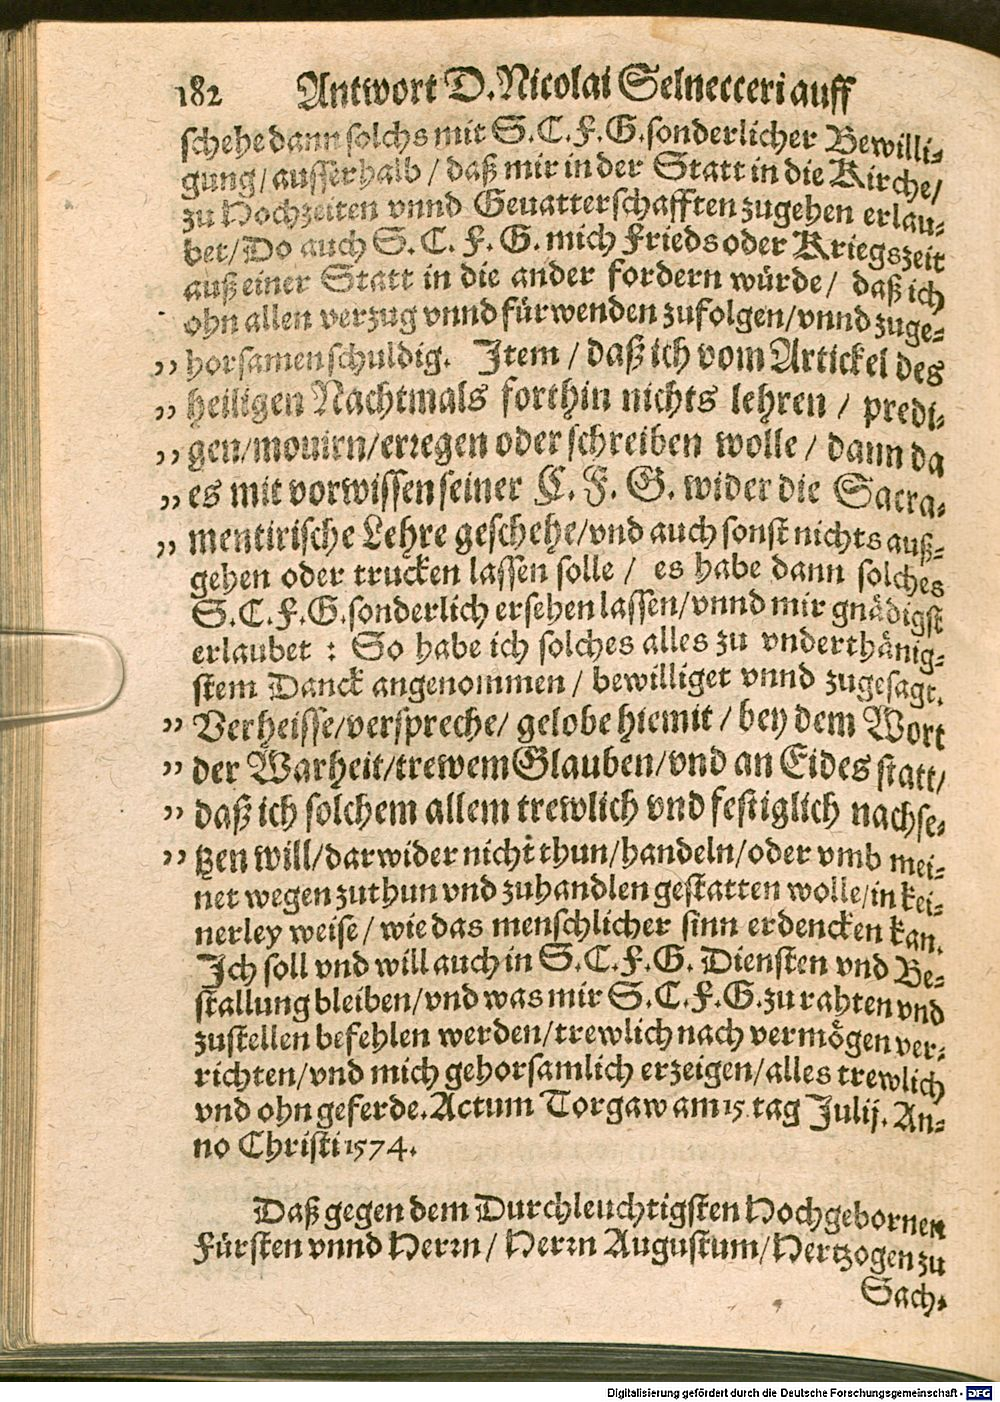 182 Antwort D. Nicolai Selnecceri auff
schehe dann solchs mit S. C. F. G. sonderlicher Bewilli-
gung/ ausserhalb / daß mir in der Statt in die Kirche/
zu Hochzeiten vnnd Gevatterschafften zugehen erlau-
bet/ Do auch S. C. F. G. mich Frieds oder Kriegszeit
auß einer Statt in die ander fordern würde / daß ich
ohn allen verzug vnnd fürwenden zufolgen/ vnnd zuge-
„ horsamen schuldig. Item / daß ich vom Artickel des
„ heiligen Nachtmals forthin nichts lehren / predi-
„ gen/ mouirn/ erregen oder schreiben wolle / dann da
„ es mit vorwissen seiner C. F. G. wider die Sacra-
„ mentirische Lehre geschehe/ vnd auch sonst nichts auß-
gehen oder trucken lassen solle / es habe dann solches
S. C. F. G. sonderlich ersehen lassen/ vnnd mir gnädigst
erlaubet : So habe ich solches alles zu vnderthänig-
stem Danck angenommen / bewilliget vnnd zugesagt.
„ Verheisse/ verspreche/ gelobe hiemit / bey dem Wort
„ der Warheit/ trewem Glauben/ vnd an Eides statt/
„ daß ich solchem allem trewlich vnd festiglich nachse-
„ tzen will/ darwider nicht thun/ handeln/ oder vmb mei-
net wegen zuthun vnd zuhandlen gestatten wolle/ in kei-
nerley weise / wie das menschlicher sinn erdencken kan.
Ich soll vnd will auch in S. C. F. G. Diensten vnd Be-
stallung bleiben/ vnd was mir S. C. F. G. zu rahten vnd
zustellen befehlen werden/ trewlich nach vermögen ver-
richten/ vnd mich gehorsamlich erzeigen/ alles trewlich
vnd ohn geferde. Actum Torgaw am 15. tag Julij. An-
no Christi 1574.
Daß gegen dem Durchleuchtigsten Hochgebornen
Fürsten vnnd Herrn / Herrn Augustum/ Hertzogen zu
Sach-
Digitalisierung gefördert durch die Deutsche Forschungsgemeinschaft - DFG